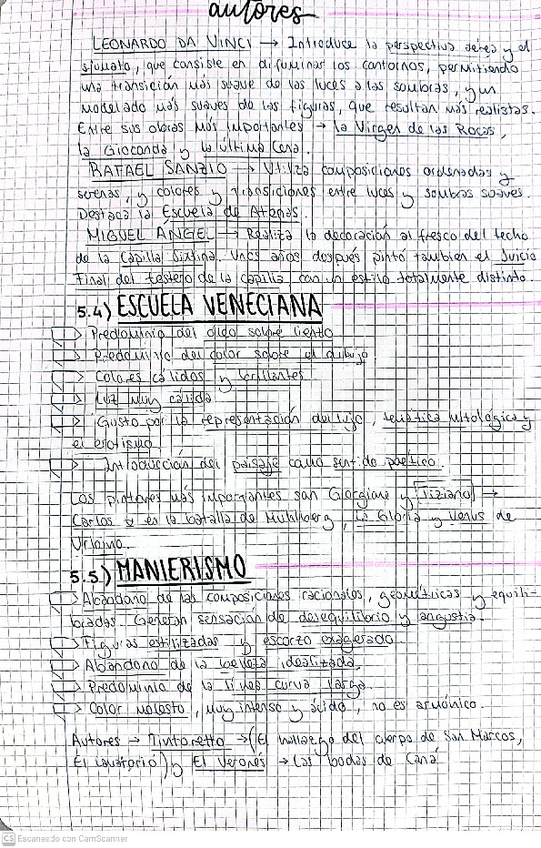 autores
LEONARDO DA VINCI → Introduce la perspectiva aérea y el
sfumato, que consiste en difuminar los contornos, permitiendo
una transición más suave de las luces a las sombras, y un
modelado más suaves de las figuras, que resultan más realistas.
Entre sus obras más importantes → la Virgen de las Rocas,
la Gioconda y la última Cena.
RAFAEL SANZIO → Utiliza composiciones ordenadas y
serenas, y colores y transiciones entre luces y sombras suaves.
Destaca la Escuela de Atenas.
MIGUEL ÁNGEL → Realiza la decoración al fresco del techo
de la Capilla Sixtina. Unos años después pintó también el Juicio
Final del testero de la capilla con un estilo totalmente distinto.
5.4) ESCUELA VENECIANA
Predominio del óleo sobre lienzo
Predominio del color sobre el dibujo
Colores cálidos y brillantes
Luz muy cálida
Gusto por la representación del lujo, temática mitológica y
el erotismo.
Introducción del paisaje como sentido poético.
Los pintores más importantes son Giorgione y Tiziano →
Carlos V en la batalla de Mühlberg, La Gloria y Venus de
Urbino.
5.5) MANIERISMO
Abandono de las composiciones racionales, geométricas y equili-
bradas. Generan sensación de desequilibrio y angustia.
Figuras estilizadas y escorzo exagerado.
Abandono de la belleza idealizada.
Predominio de la línea curva larga.
Color molesto, muy intenso y ácido, no es armónico.
Autores → Tintoretto → (El hallazgo del cuerpo de San Marcos,
El Lavatorio) y El Veronés → Las bodas de Caná
CS Escaneado con CamScanner